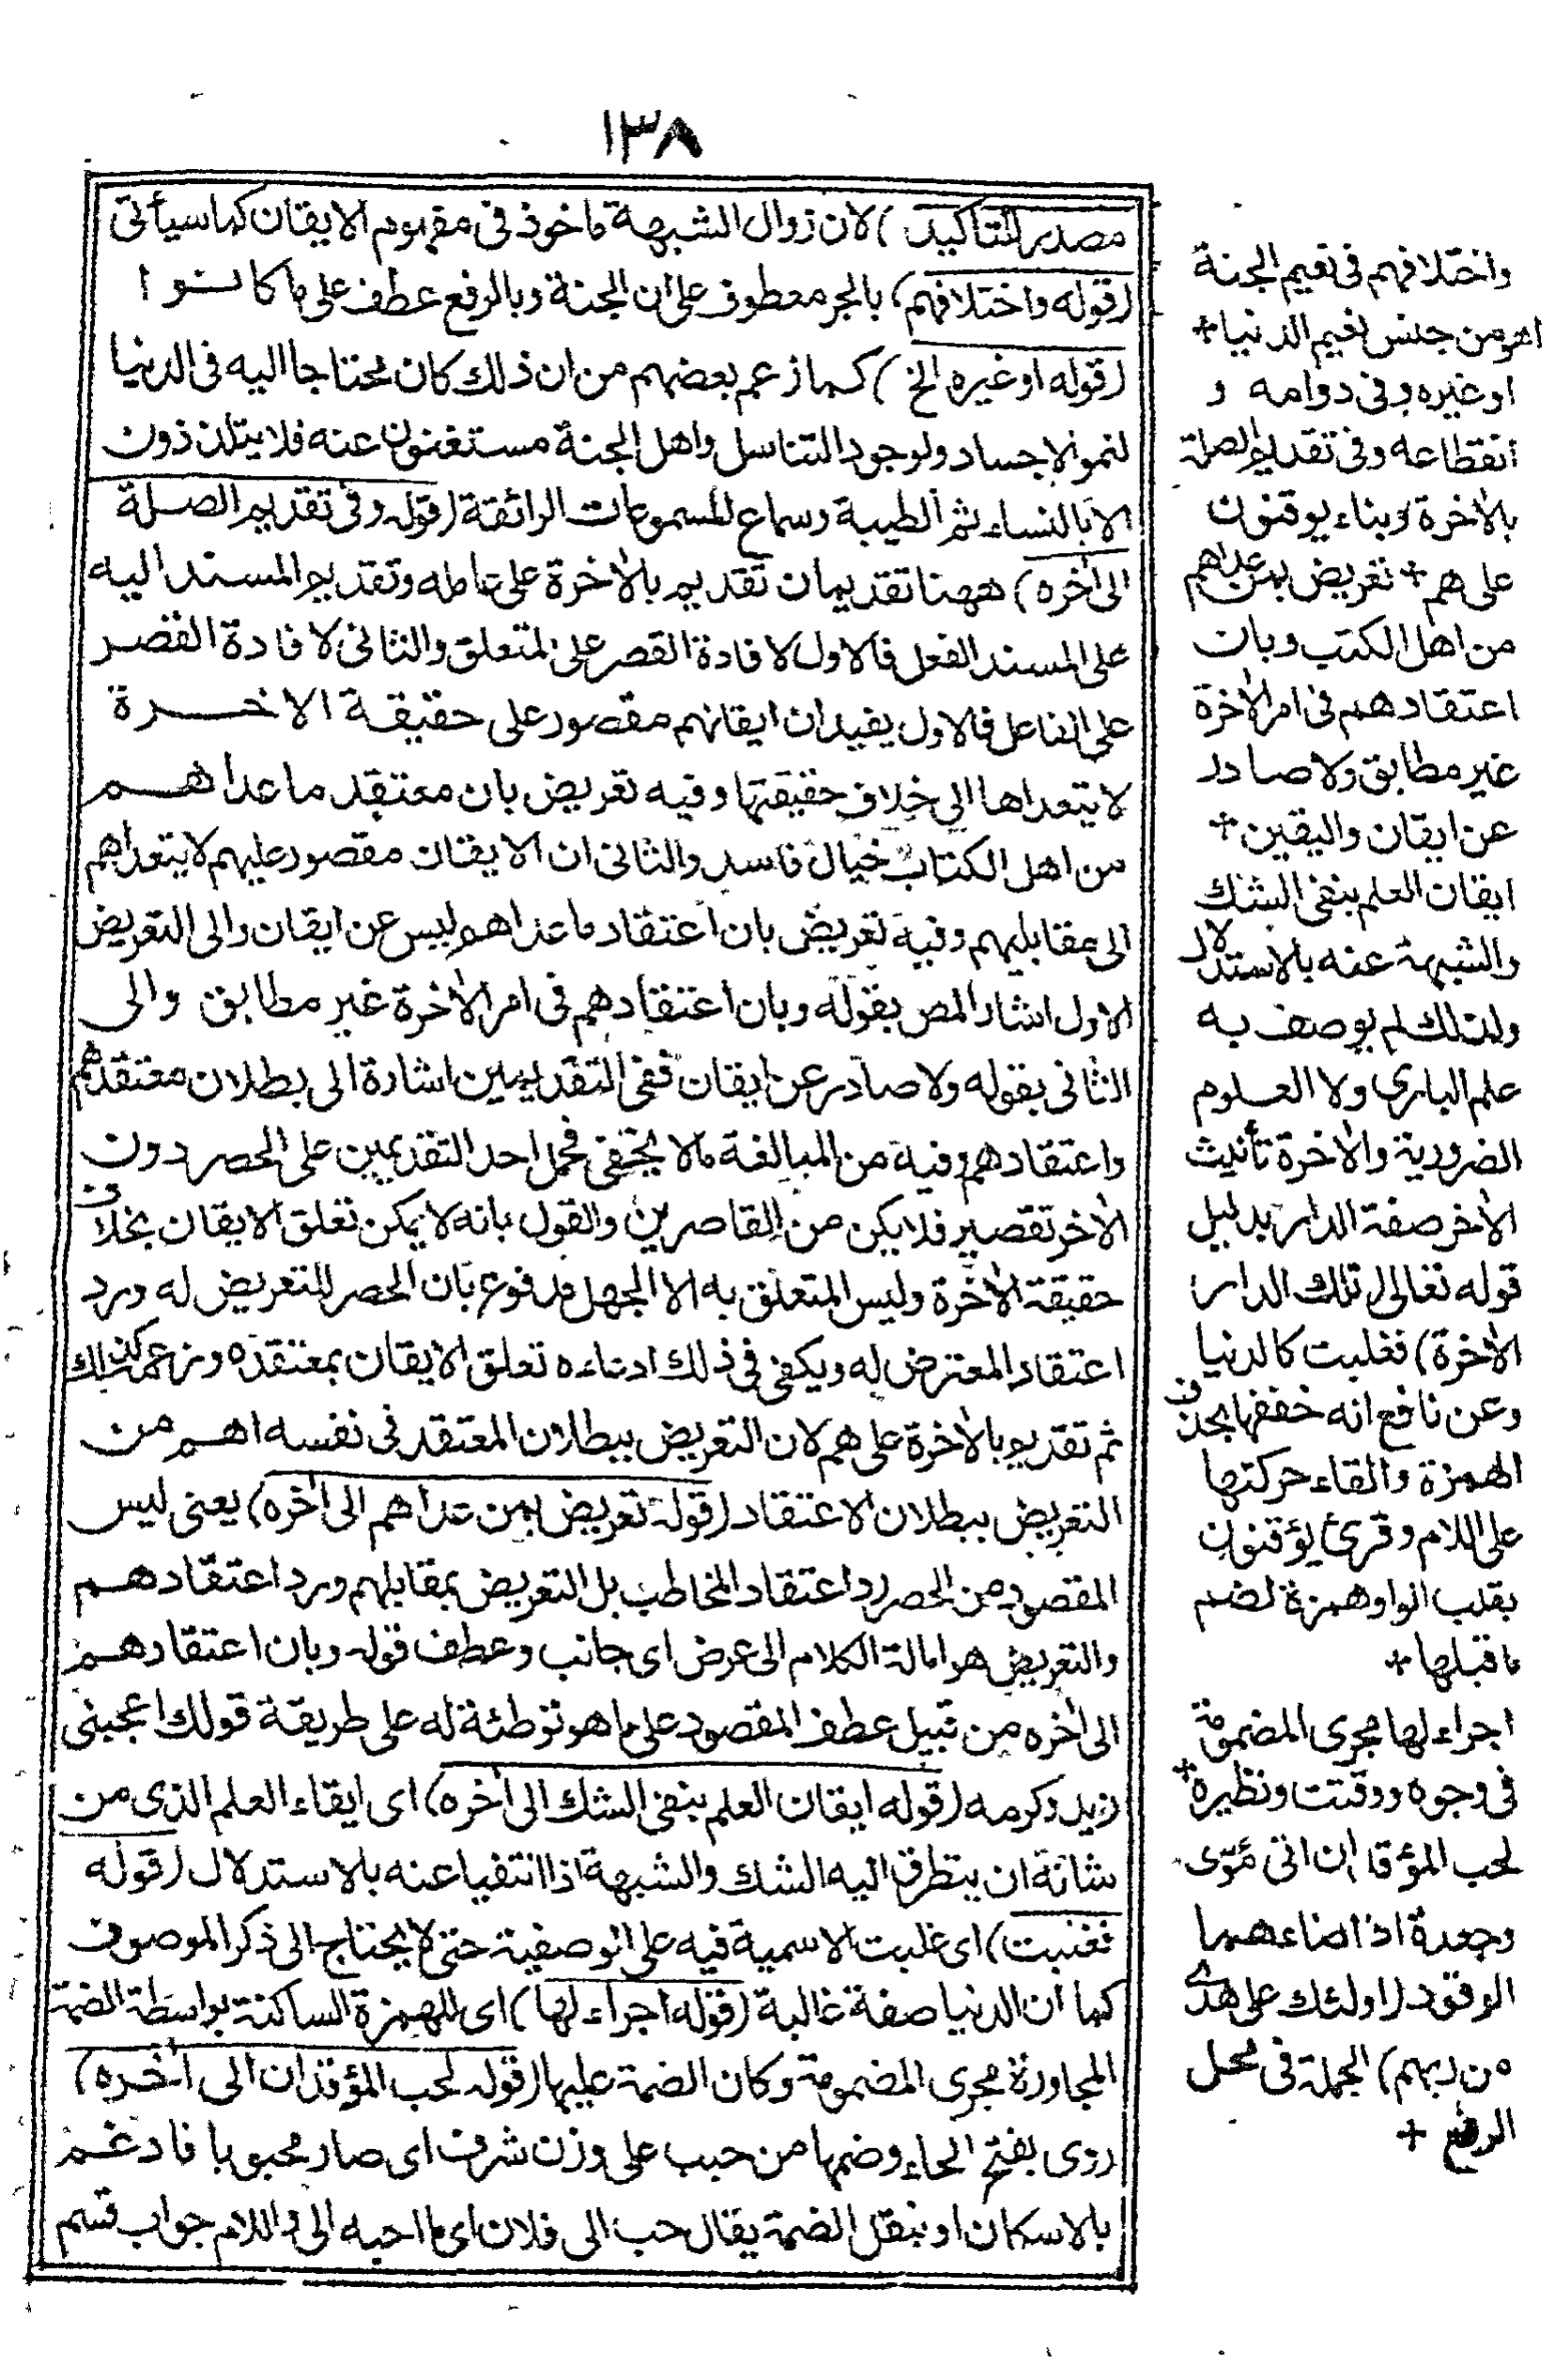 ١٣٨
مصدر للتاكيد) لان زوال الشبهة ماخوذ فى مفهوم الايقان كما سيأتى
(قوله واختلافهم) بالجر معطوف على ان الجنة وبالرفع عطف على ما كانوا
(قوله او غيره الخ) كما زعم بعضهم من ان ذلك كان محتاجا اليه فى الدنيا
لنمو الاجساد ولوجود التناسل واهل الجنة مستغنون عنه فلا يتلذذون
الا بالنساء الطيبة وسماع المسموعات الرائقة (قوله وفى تقديم الصلة
الى اخره) ههنا تقديمان تقديم بالاخرة على عامله وتقديم المسند اليه
على المسند الفعل فالاول لافادة القصر على المتعلق والثانى لافادة القصر
على الفاعل فالاول يفيد ان ايقانهم مقصور على حقيقة الاخرة
لا يتعداها الى خلاف حقيقتها وفيه تعريض بان معتقد ما عداهم
من اهل الكتاب خيال فاسد والثانى ان الايقان مقصور عليهم لا يتعداهم
الى مقابليهم وفيه تعريض بان اعتقاد ما عداهم ليس عن ايقان والى التعريض
الاول اشار المص بقوله وبان اعتقادهم فى امر الاخرة غير مطابق والى
الثانى بقوله ولا صادر عن ايقان ففى التقديمين اشارة الى بطلان معتقدهم
واعتقادهم وفيه من المبالغة مالا يخفى فحمل احد التقديمين على الحصر دون
الاخر تقصير فلا يكن من القاصرين والقول بانه لا يمكن تعلق الايقان بخلاف
حقيقة الاخرة وليس المتعلق به الا الجهل مدفوع بان الحصر للتعريض له ورد
اعتقاد المعترض له ويكفى فى ذلك ادعاءه تعلق الايقان بمعتقده وزعمه كذلك
ثم تقديم بالاخرة على هم لان التعريض ببطلان المعتقد فى نفسه اهم من
التعريض ببطلان الاعتقاد (قوله تعريض بمن عداهم الى اخره) يعنى ليس
المقصود من الحصر رد اعتقاد المخاطب بل التعريض بمقابلهم ورد اعتقادهم
والتعريض هو امالة الكلام الى عرض اى جانب وعطف قوله وبان اعتقادهم
الى اخره من قبيل عطف المقصود على ما هو توطئة له على طريقة قولك اعجبنى
زيد وكرمه (قوله ايقان العلم بنفى الشك الى اخره) اى ايقاء العلم الذى من
شانه ان يتطرق اليه الشك والشبهة اذا انتفيا عنه بالاستدلال (قوله
فغلبت) اى غلبت الاسمية فيه على الوصفية حتى لا يحتاج الى ذكر الموصوف
كما ان الدنيا صفة غالبة (قوله اجراء لها) اى للهمزة الساكنة بواسطة الضمة
المجاورة مجرى المضمومة وكان الضمة عليها (قوله لحب المؤقدان الى اخره)
روى بفتح الحاء وضمها من حبب على وزن شرف اى صار محبوبا فادغم
بالاسكان او بنقل الضمة يقال حب الى فلان اى ما احبه الى واللام جواب قسم
واختلافهم فى نعيم الجنة
اهو من جنس نعيم الدنيا +
او غيره وفى دوامه و
انقطاعه وفى تقديم الصلة
بالاخرة وبناء يوقنون
على هم + تعريض بمن عداهم
من اهل الكتب وبان
اعتقادهم فى امر الاخرة
غير مطابق ولا صادر
عن ايقان واليقين +
ايقان العلم بنفى الشك
والشبهة عنه بالاستدلال
ولذلك لم يوصف به
علم البارى ولا العلوم
الضرورية والاخرة تأنيث
الاخر صفة الدار بدليل
قوله تعالى (تلك الدار
الاخرة) فغلبت كالدنيا
وعن نافع انه خففها بحذف
الهمزة والقاء حركتها
على اللام وقرئ يؤقنون
بقلب الواو همزة لضم
ما قبلها +
اجراء لها مجرى المضمومة
فى وجوه ووقتت ونظيره +
لحب المؤقدان الى مؤسى
وجعدة اذ اضاءهما
الوقود (اولئك على هدى
من ربهم) الجملة فى محل
الرفع +